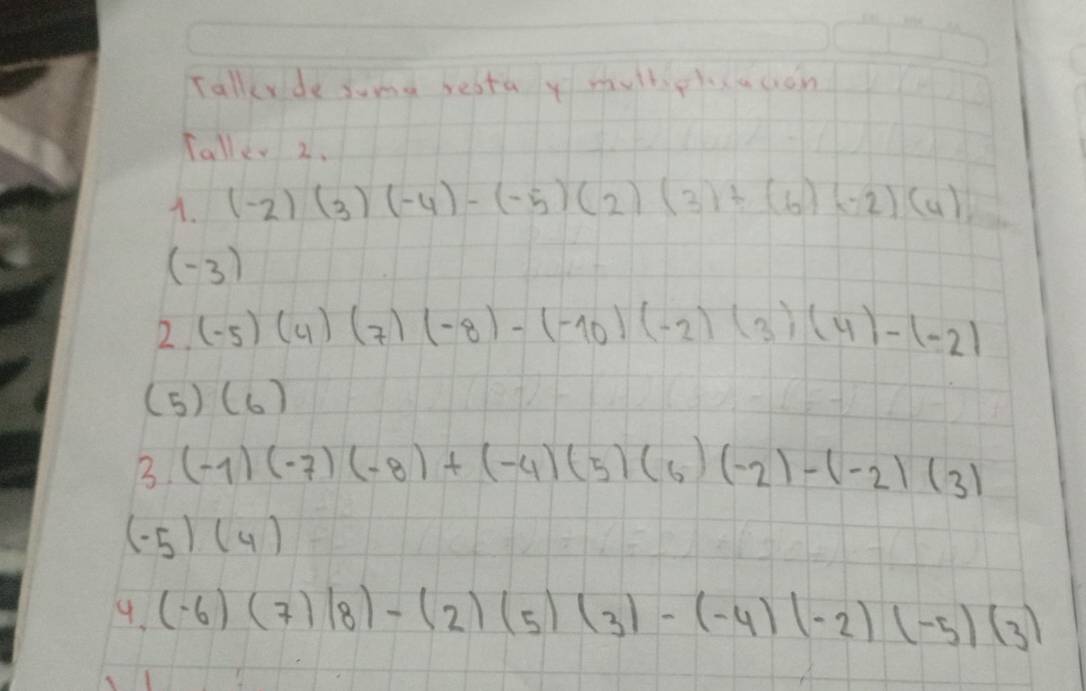 Taller de suma resta y multiplicación
Taller 2.
1. (-2) (3) (-4) - (-5) (2) (3) + (6) (-2) (4)
(-3)
2. (-5) (4) (7) (-8) - (-10) (-2) (3) (4) - (-2)
(5) (6)
3. (-1) (-7) (-8) + (-4) (5) (6) (-2) - (-2) (3)
(-5) (4)
4. (-6) (7) (8) - (2) (5) (3) - (-4) (-2) (-5) (3)